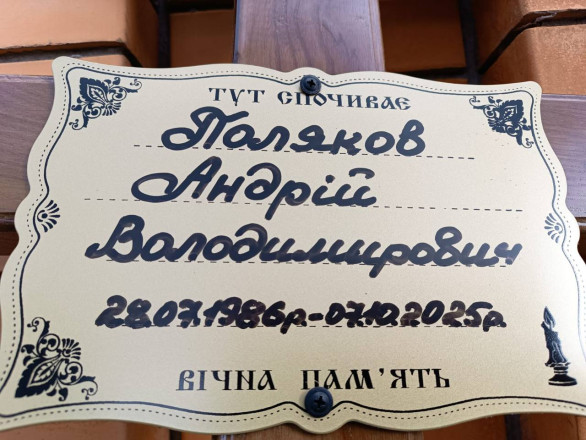 ТУТ СПОЧИВАЄ
Поляков
Андрій
Володимирович
28.07.1986р.-07.10.2025р.
ВІЧНА ПАМ'ЯТЬ